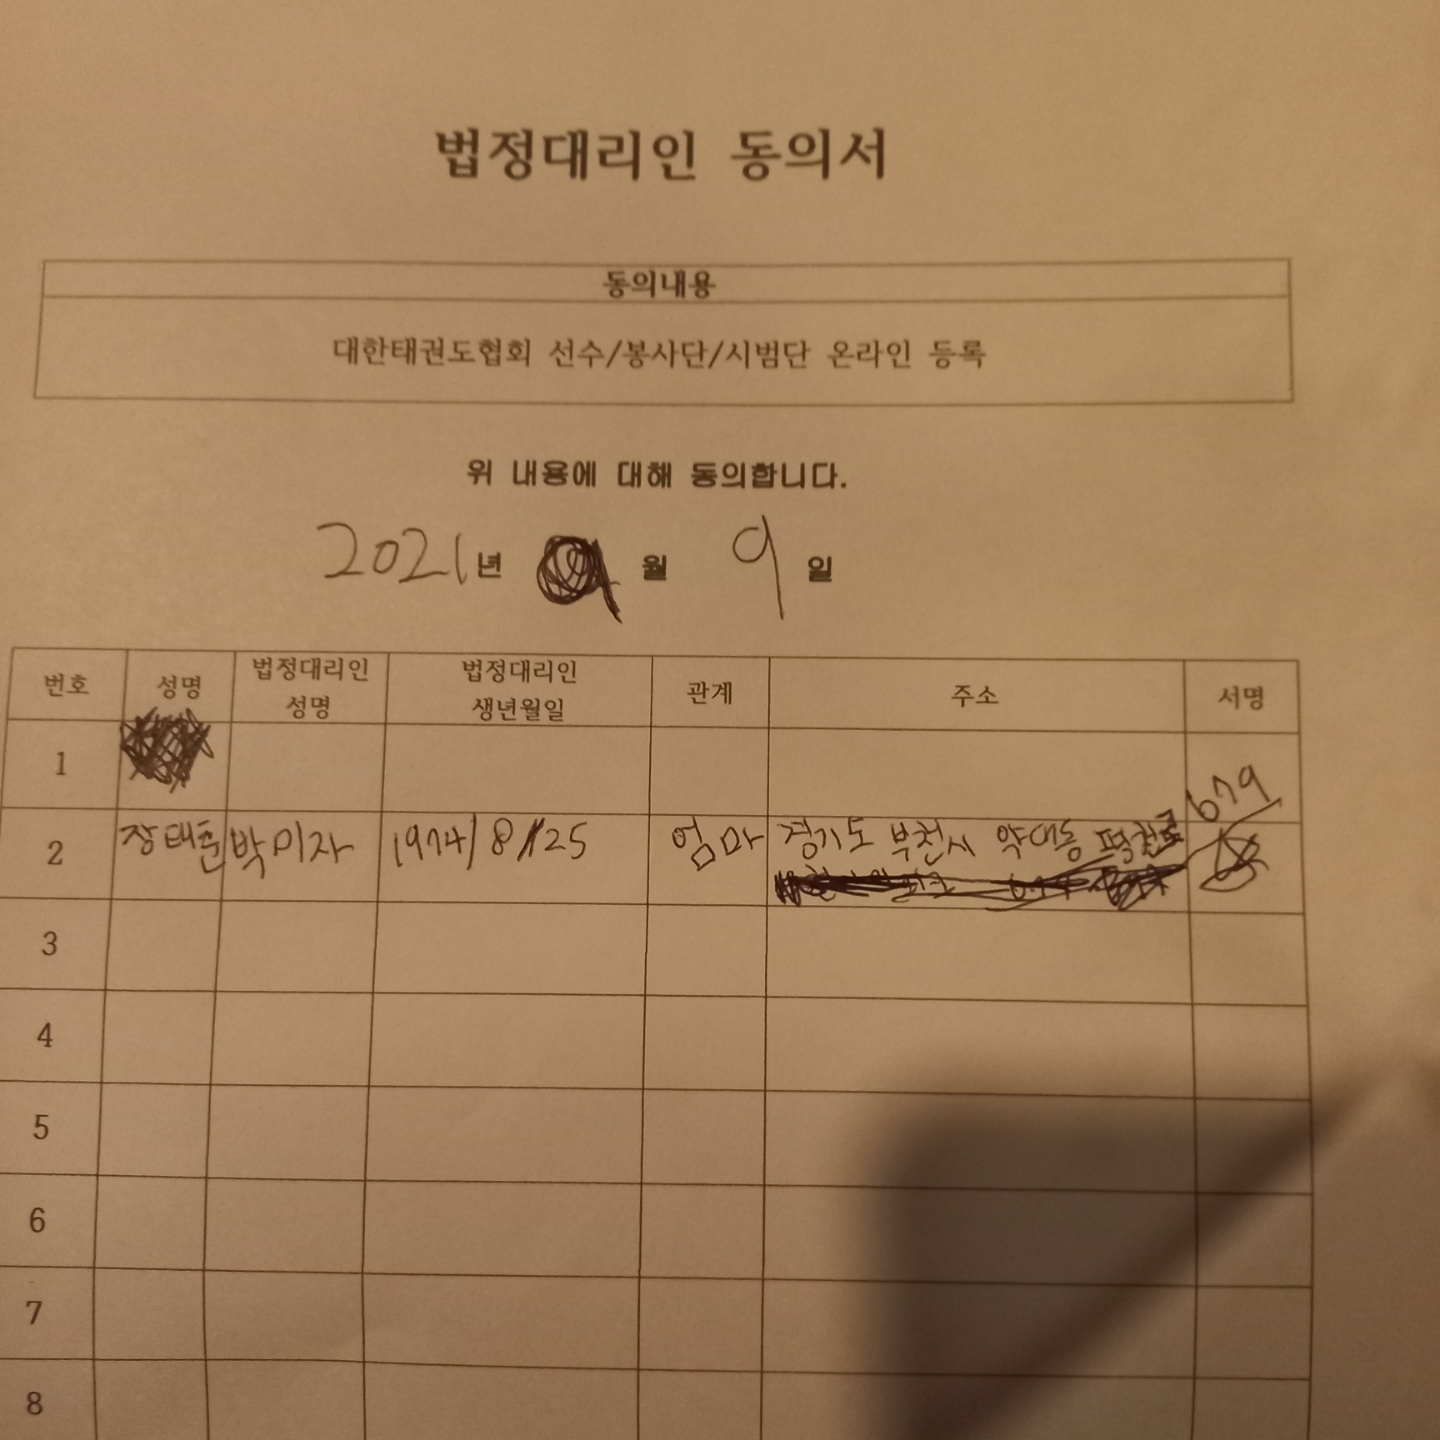 법정대리인 동의서
동의내용
대한태권도협회 선수/봉사단/시범단 온라인 등록
위 내용에 대해 동의합니다.
2021년 월 9일
번호 성명 법정대리인 성명 법정대리인 생년월일 관계 주소 서명
1
679
2 장태훈 박미자 1974/8/25 엄마 경기도 부천시 약대동 평천로
3
4
5
6
7
8